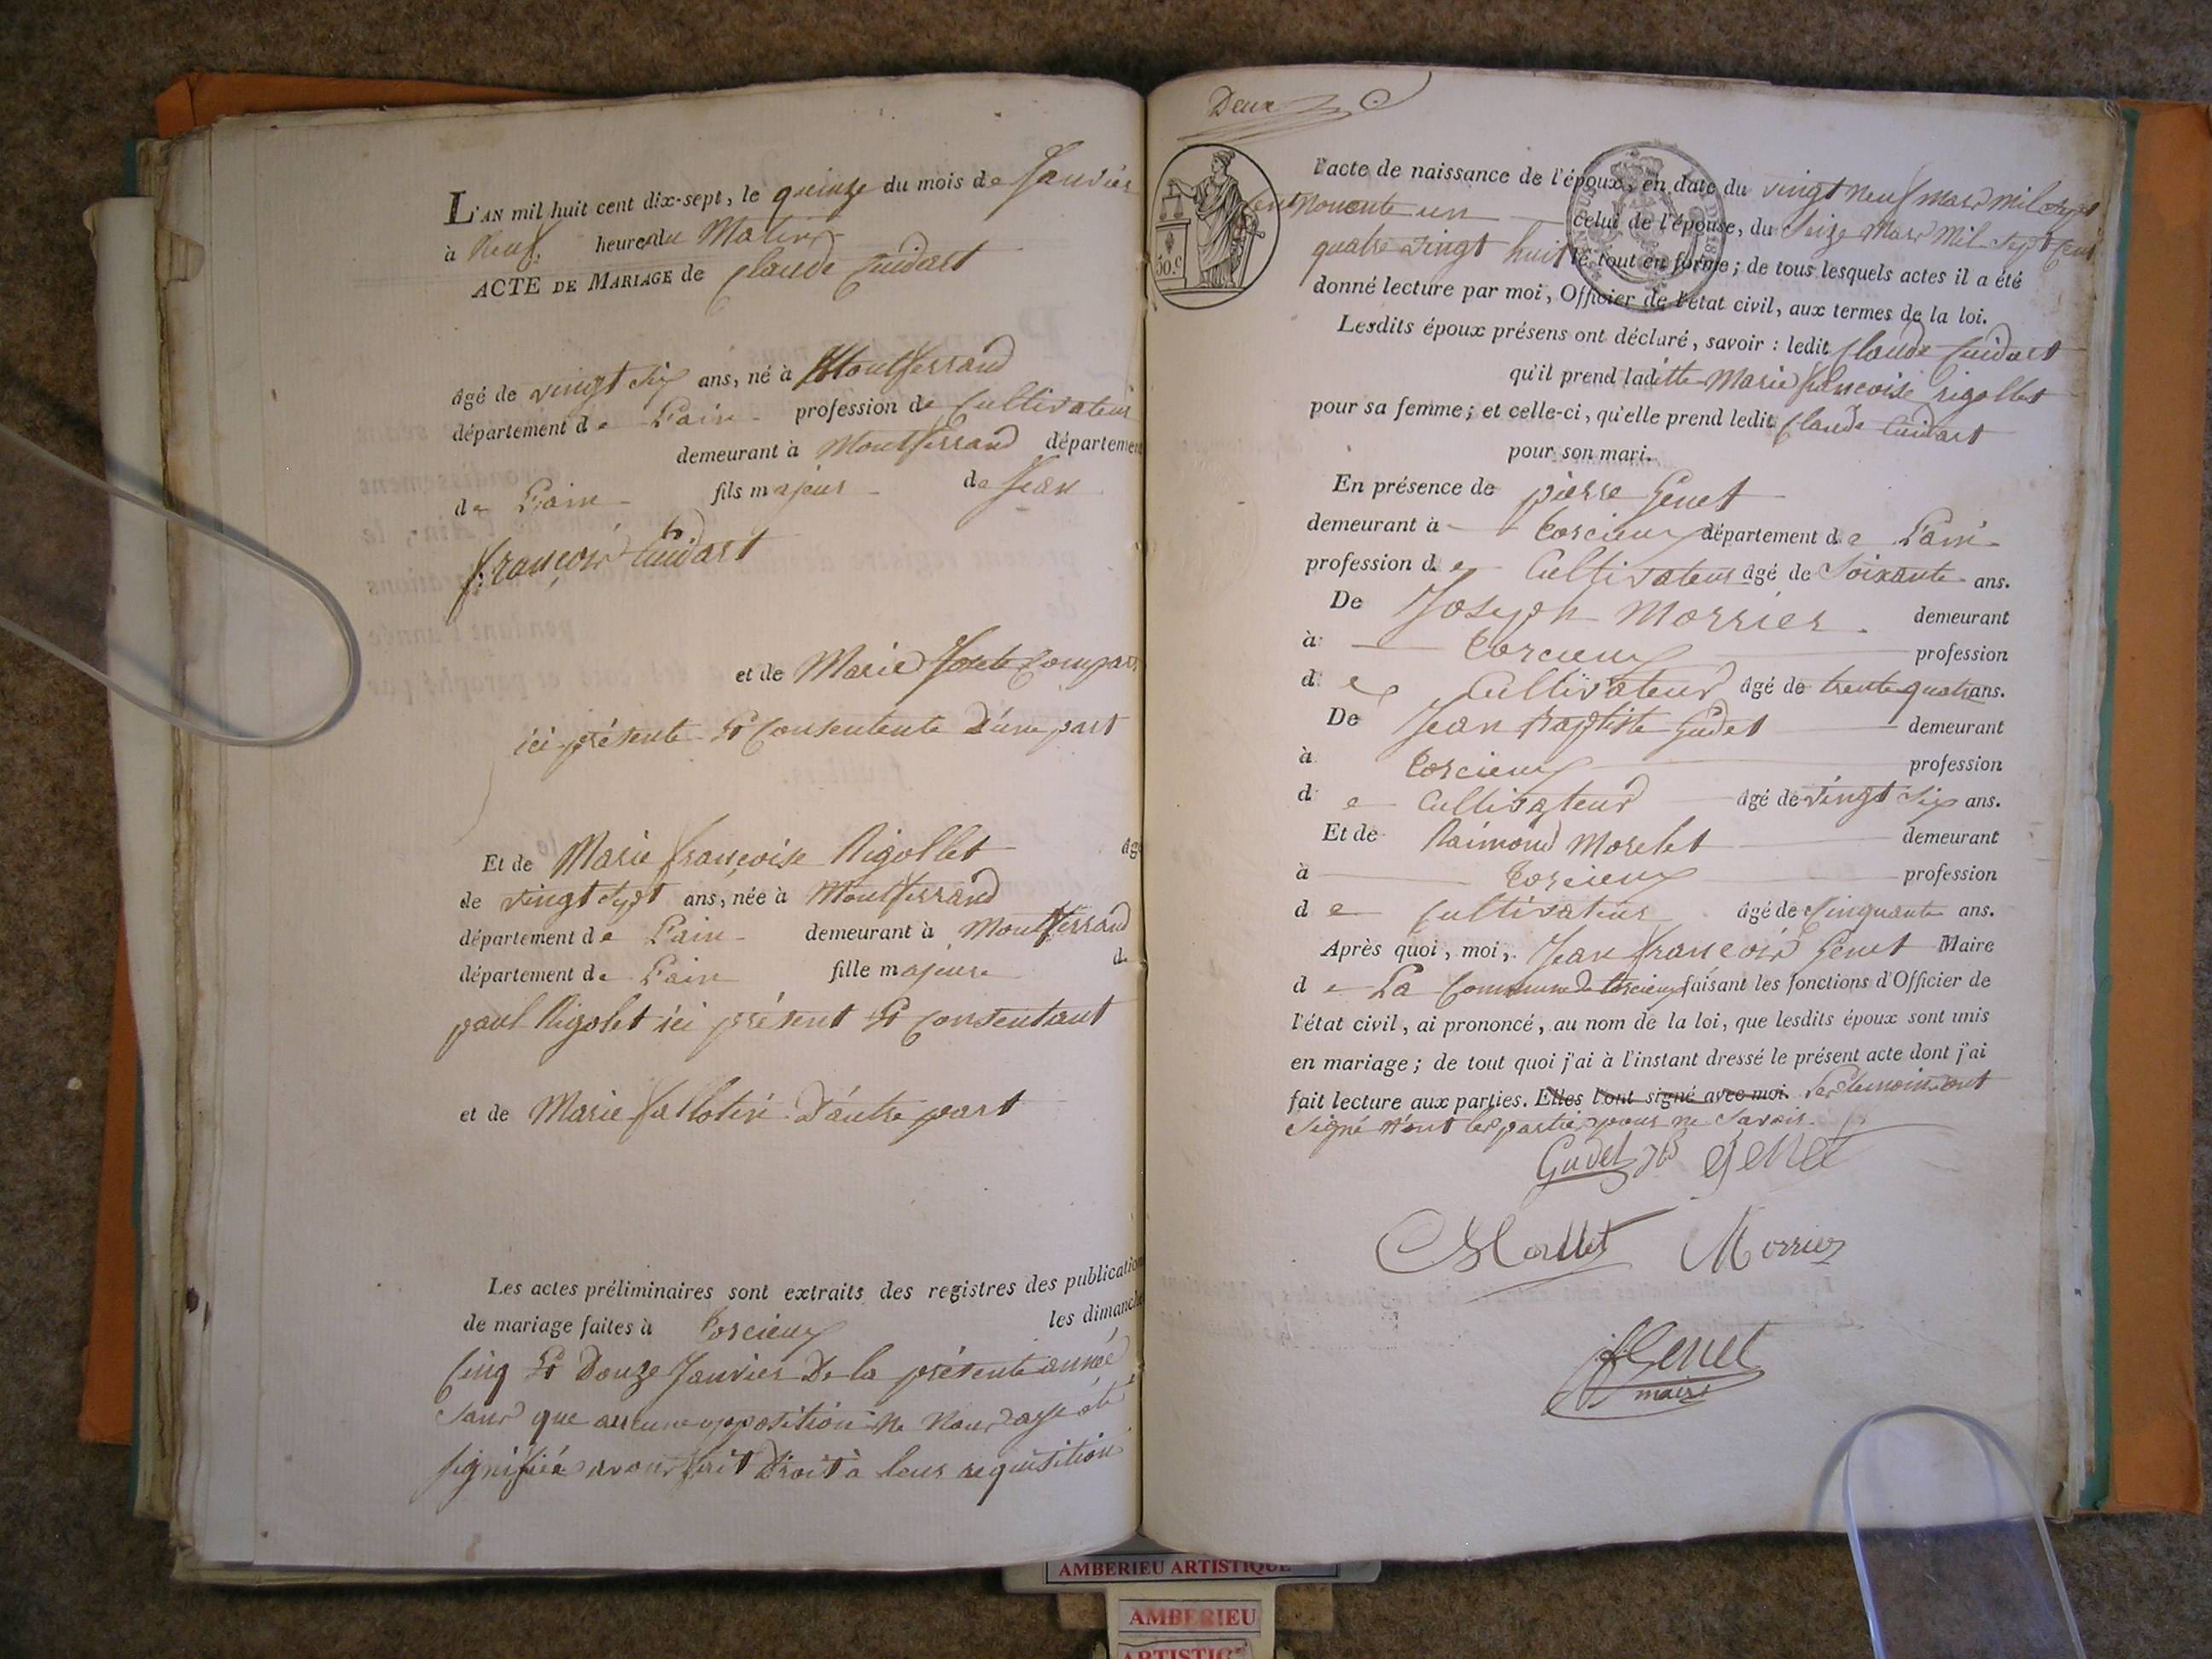 L'AN mil huit cent dix-sept, le quinze du mois de Janvier
à Neuf heures du Matin
ACTE DE MARIAGE de Claude Cuidart
âgé de vingt six ans, né à Montferrand
département de L'ain profession de Cultivateur
demeurant à Montferrand département
de L'ain fils majeur de Jean
françois Cuidart
et de Marie Josete
ici présente Et Consentente D'une part
Et de Marie françoise Rigollet âg
de vingt sept ans, née à Montferrand
département de L'ain demeurant à Montferrand
département de L'ain fille majeure de
paul Rigolet ici présent Et Consentant
et de Marie D'autre part
Les actes préliminaires sont extraits des registres des publication
de mariage faites à Torcieux les dimanche
Cinq Et Douze Janvier De la présente année
sans que aucune opposition Ne Nous aye été
signifiée avons fait Droit à leur requisition
Deux
50.c
l'acte de naissance de l'époux, en date du vingt neuf mars mil sept
Cent Nonente un celui de l'épouse, du seize mars Mil sept Cent
quatre vingt huit le tout en forme; de tous lesquels actes il a été
donné lecture par moi, Officier de l'état civil, aux termes de la loi.
Lesdits époux présens ont déclaré, savoir : ledit Claude Cuidart
qu'il prend ladite Marie françoise rigollet
pour sa femme; et celle-ci, qu'elle prend ledit Claude Cuidart
pour son mari.
En présence de pierre Genet
demeurant à Torcieux département de L'ain
profession de Cultivateur âgé de Soixante ans.
De Joseph Morrier demeurant
à Torcieux profession
de Cultivateur âgé de trente quatre ans.
De Jean Baptiste Gudet demeurant
à Torcieux profession
de Cultivateur âgé de vingt six ans.
Et de Raimond Morelet demeurant
à Torcieux profession
de Cultivateur âgé de Cinquante ans.
Après quoi, moi, Jean françois Genet Maire
de La Commune de Torcieux faisant les fonctions d'Officier de
l'état civil, ai prononcé, au nom de la loi, que lesdits époux sont unis
en mariage; de tout quoi j'ai à l'instant dressé le présent acte dont j'ai
fait lecture aux parties. Elles l'ont signé avec moi. Les temoins ont
signé Non les parties pour ne savoir
Gudet JB Genet
Morllet Morrier
Genet
maire
AMBERIEU ARTISTIQUE
AMBERIEU
ARTISTIQ